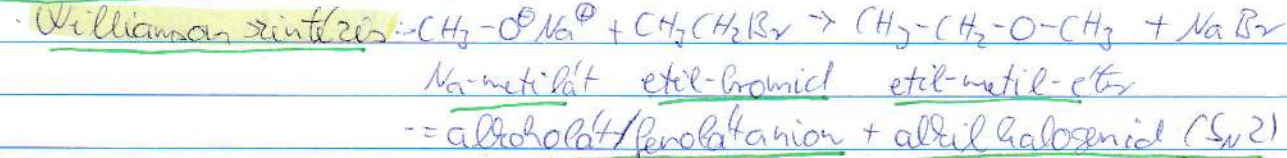 Williamson szintézis:-CH₃-O⊖Na⊕ + CH₃CH₂Br → CH₃-CH₂-O-CH₃ + NaBr
Na-metilát etil-bromid etil-metil-éter
-= alkoholát/fenolát anion + alkil halogenid (SN2)